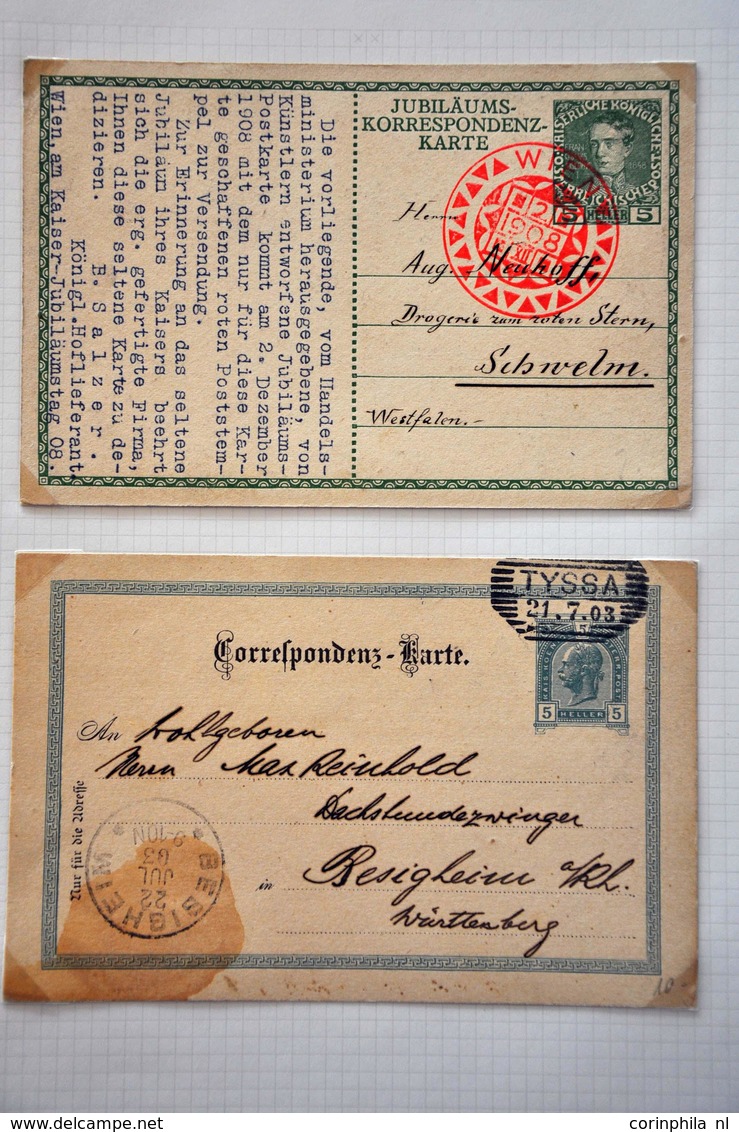 JUBILÄUMS-
KORRESPONDENZ-
KARTE
KAISERLICHE KÖNIGLICHE
ÖSTERREICHISCHE POST
1848
5 HELLER 5
WIEN
2
1908
XII
Herrn
Aug. Neuhoff,
Drogerie zum roten Stern,
Schwelm.
Westfalen.-
Die vorliegende, vom Handels-
ministerium herausgegebene, von
Künstlern entworfene Jubiläums-
Postkarte kommt am 2. Dezember
1908 mit dem nur für diese Kar-
te geschaffenen roten Poststem-
pel zur Versendung.
Zur Erinnerung an das seltene
Jubiläum ihres Kaisers beehrt
sich die erg. gefertigte Firma,
Ihnen diese seltene Karte zu de-
dizieren.
E. Salzer.
Königl. Hoflieferant.
Wien, am Kaiser-Jubiläumstag 08.
TYSSA
21.7.03
Correspondenz-Karte.
5 HELLER 5
An Wohlgeboren
Herrn Max Reinhold
Dachshundezwinger
in Besigheim a/Rh.
Württemberg
Nur für die Adresse
BESIGHEIM
22
JUL
03
9-10N
10
corinphila nl